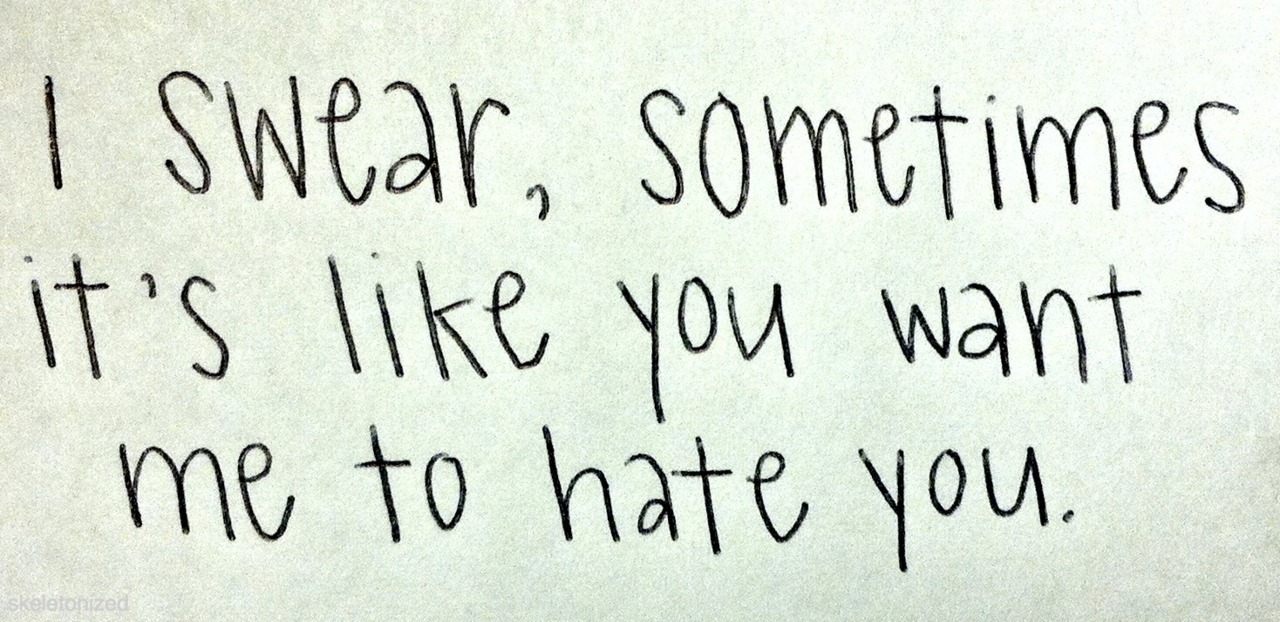 I swear, sometimes
it's like you want
me to hate you.
skeletonized